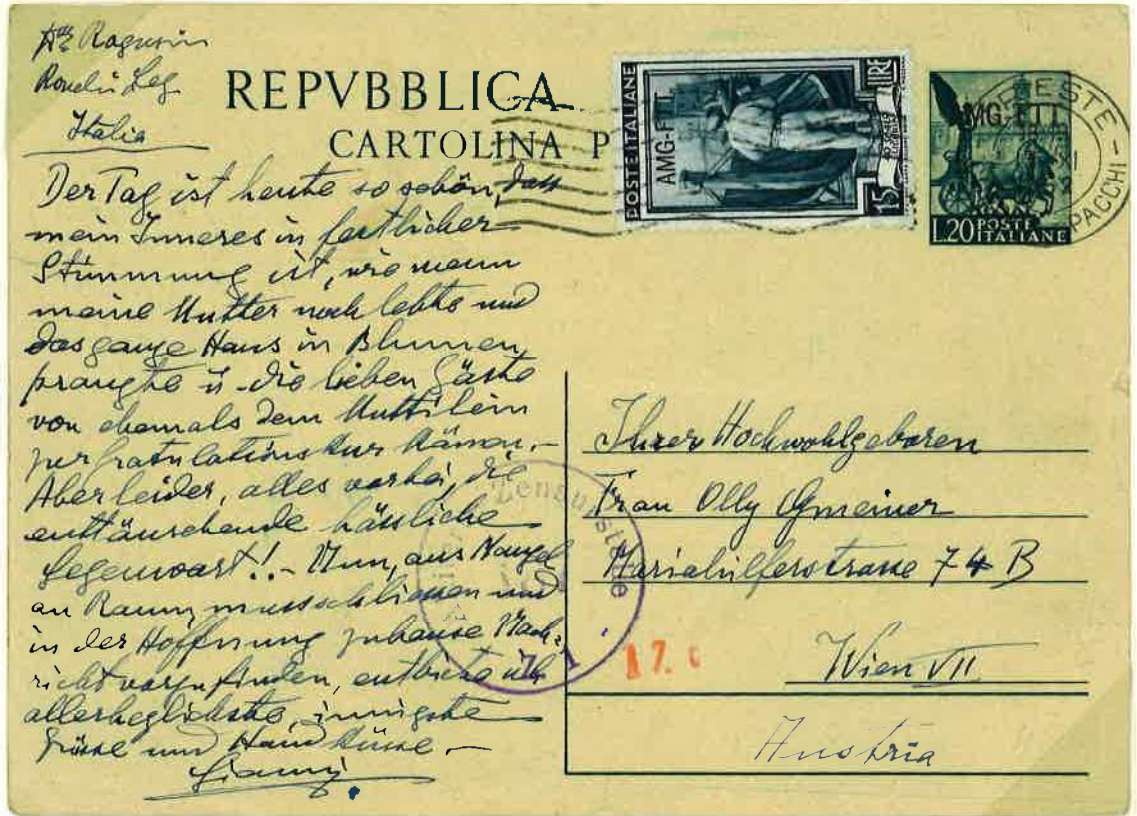 Ragusin
Ronchi Leg.
Italia
REPVBBLICA
CARTOLINA P
POSTE ITALIANE
AMG-FTT
15 LIRE
AMG-FTT
L.20 POSTE ITALIANE
TRIESTE
PACCHI -
Der Tag ist heute so schön, dass
mein Inneres in festlicher
Stimmung ist, wie wenn
meine Mutter noch lebte und
das ganze Haus in Blumen
prangte u. die lieben Gäste
von ehemals dem Muttilein
zur Gratulationskur kämen. -
Aber leider, alles vorbei, die
enttäuschende hässliche
Gegenwart!! - Nun, aus Mangel
an Raum, muss schliessen und
in der Hoffnung zuhause Nach-
richt vorzufinden, entbiete ich
allerherzlichste, innigste
Grüsse und Handküsse -
Gianni
Ihrer Hochwohlgeboren
Frau Olly Gmeiner
Mariahilferstrasse 74 B
Wien VII
Austria
Zensurstelle
17.